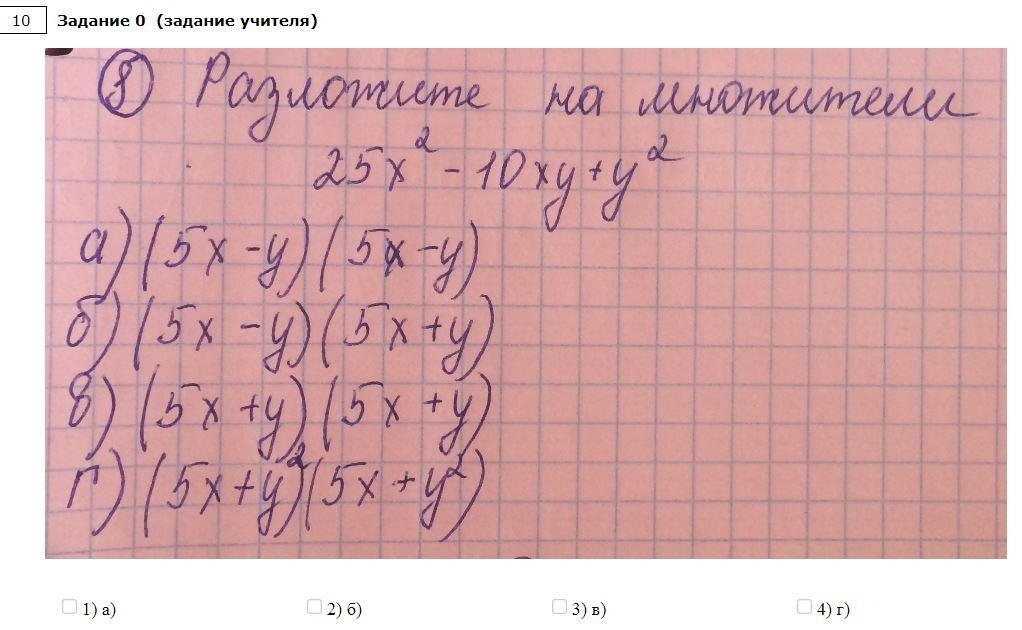 10 Задание 0 (задание учителя)
8 Разложите на множители
25x² - 10xy + y²
а) (5x - y) (5x - y)
б) (5x - y) (5x + y)
в) (5x + y) (5x + y)
г) (5x + y²)(5x + y²)
1) а) 2) б) 3) в) 4) г)